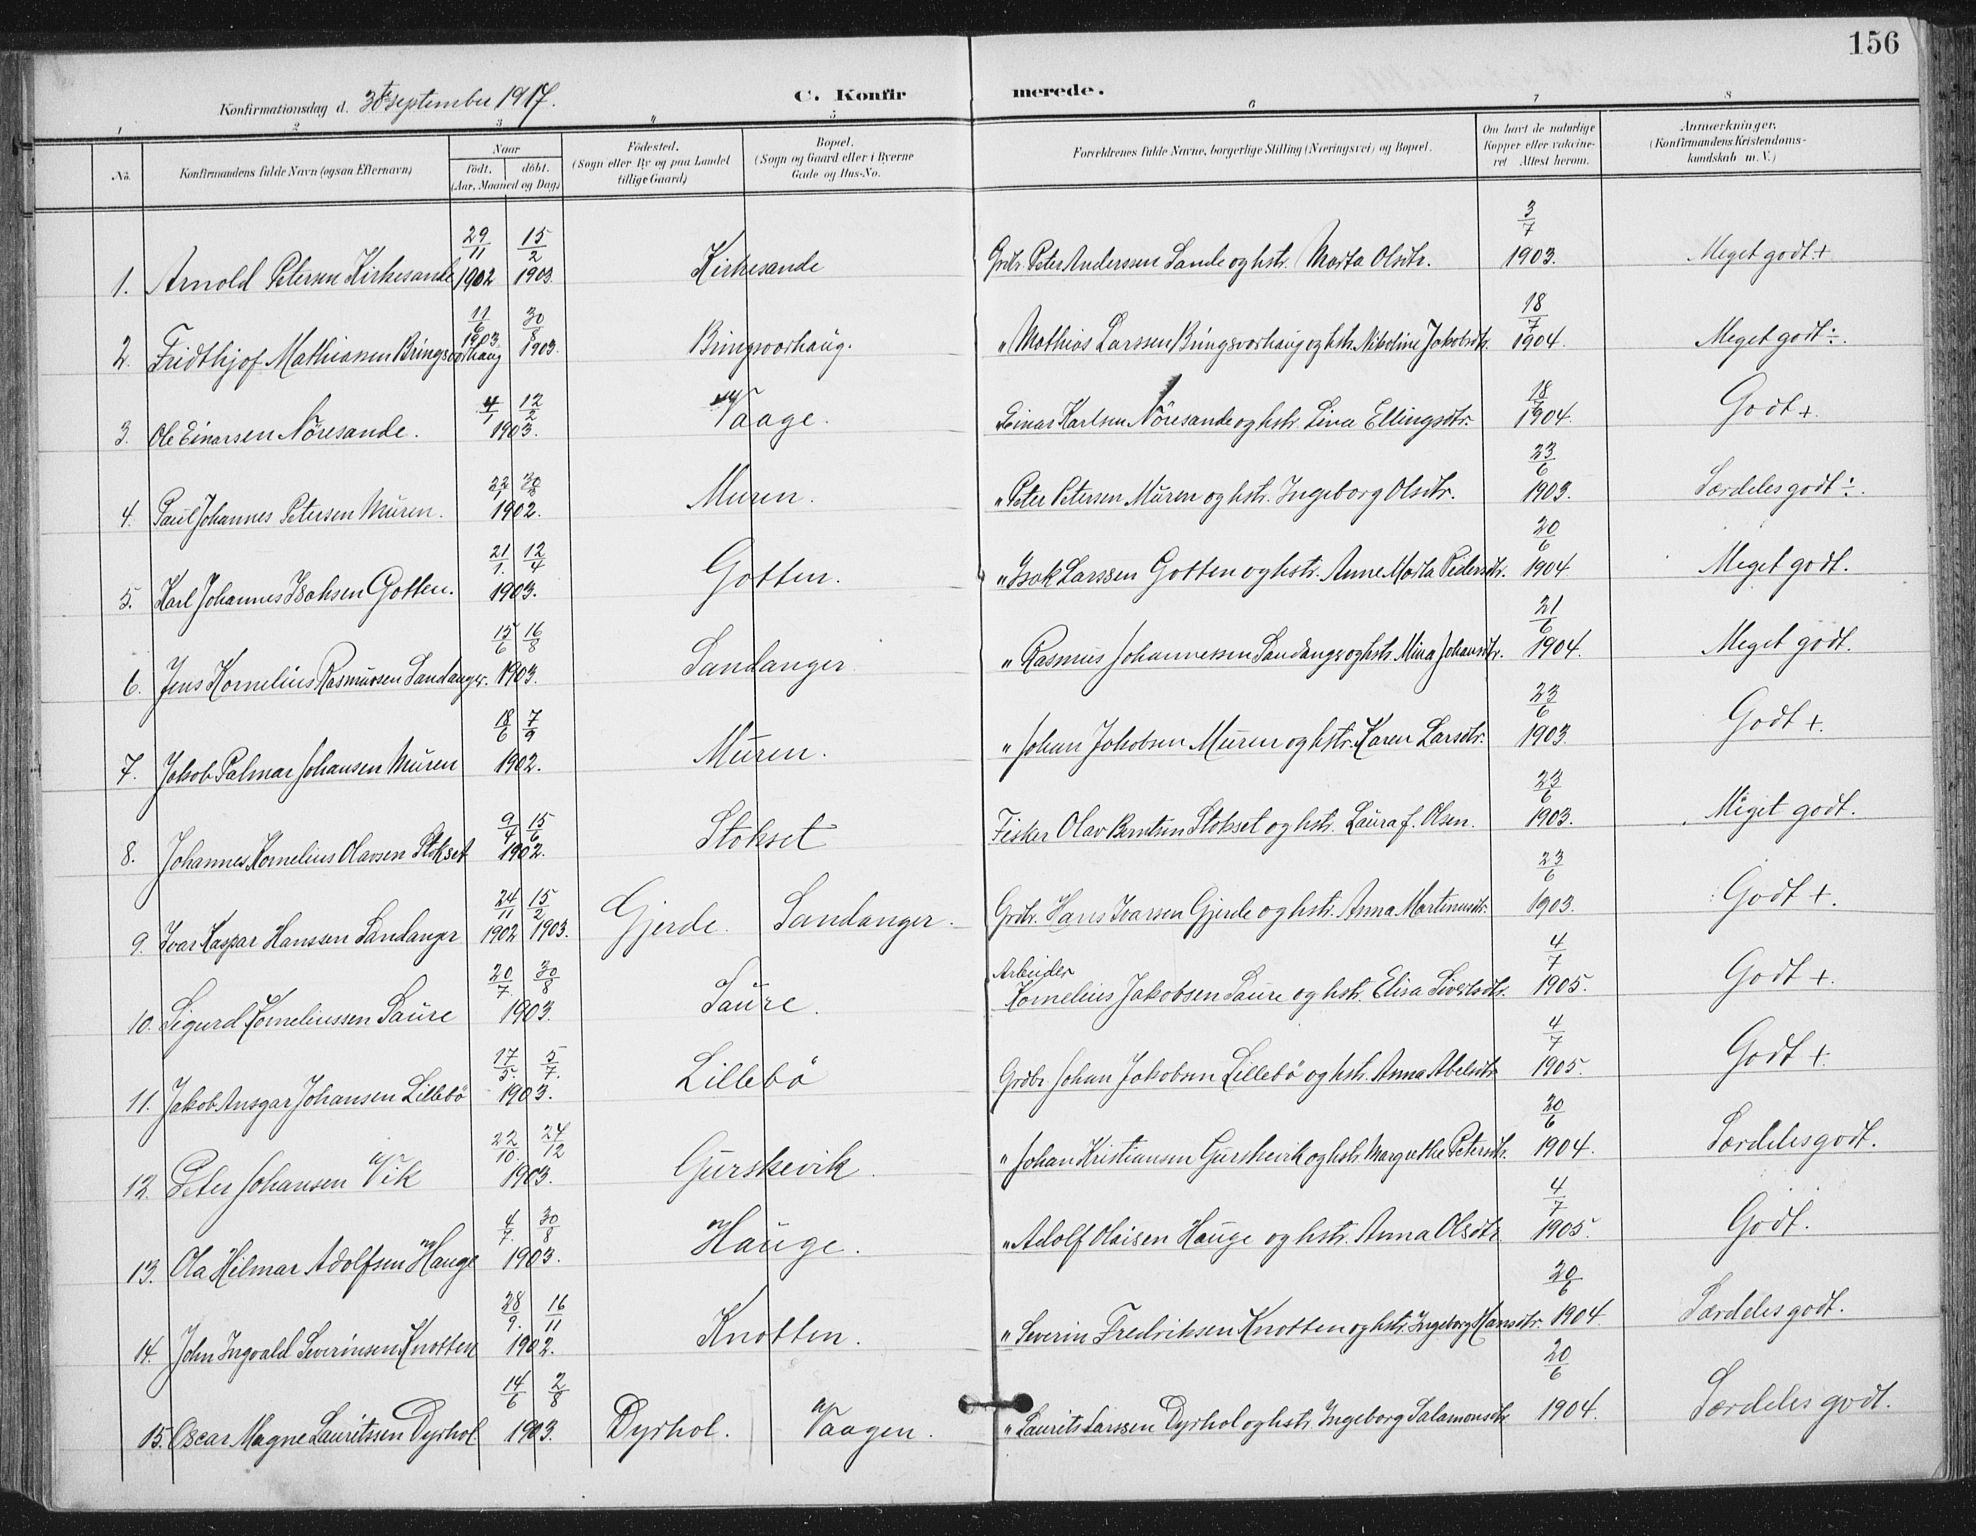 156
Konfirmationsdag d. 30te september 1917.
C. Konfirmerede.
1 2 3 4 5 6 7 8
No.
Konfirmandens fulde Navn (ogsaa Efternavn)
Naar
født. døbt.
(Aar, Maaned og Dag)
Fødested.
(Sogn eller By og paa Landet
tillige Gaard)
Bopæl.
(Sogn og Gaard eller i Byerne
Gade og Hus-No.
Forældrenes fulde Navne, borgerlige Stilling (Næringsvei) og Bopæl.
Om havt de naturlige
Kopper eller vakcine-
ret Attest herom.
Anmærkninger.
(Konfirmandens Kristendoms-
kundskab m. V.)
1. Arnold Petersen Kirkesande 29/11 1902 15/2 1903 Kirkesande Grdbr. Peter Anderssen Sande og hstr. Marta Olsdtr. 3/7 1903. Meget godt +
2. Fridthjof Mathiassen Bringsvorhaug 11/6 1903 30/8 1903. Bringsvorhaug. " Mathias Larssen Bringsvorhaug og hstr. Nikoline Jakobsdtr. 18/7 1904. Meget godt ÷.
3. Ole Einarsen Nöresande. 4/1 12/2 1903. Vaage. Einar Karlsen Nöresande og hstr. Lina Ellingsdtr. 18/7 1904. Godt +.
4. Paul Johannes Petersen Muren. 22/1 30/8 1902. Muren. " Peter Petersen Muren og hstr. Ingeborg Olsdtr. 23/6 1903. Særdeles godt ÷.
5. Karl Johannes Isaksen Gotten. 21/1. 12/4 1903. Gotten. " Isak Larssen Gotten og hstr. Anne Marta Pedersdtr. 20/6 1904 Meget godt.
6. Jens Kornelius Rasmussen Sandanger. 15/6 16/8 1903. Sandanger " Rasmus Johannessen Sandanger og hstr. Mina Johansdtr. 21/6 1904. Meget godt.
7. Jakob Palmar Johansen Muren 18/6 7/9 1902. Muren. " Johan Jakobsen Muren og hstr. Karen Larsdtr. 23/6 1903. Godt +.
8. Johannes Kornelius Olavsen Stokset 9/4 15/6 1902. Stokset Fisker Olav Berntsen Stokset og hstr. Laura f. Olsen. 23/6 1903. Meget godt.
9. Ivar Kaspar Hanssen Sandanger 24/11 1902 15/2 1903. Gjerde. Sandanger. Grdbr. Hans Ivarsen Gjerde og hstr. Anna Martinusdtr. 23/6 1903. Godt +.
10. Sigurd Korneliussen Saure 20/7. 30/8 1903. Saure. Arbeider Kornelius Jakobsen Saure og hstr. Elisa Sivertsdtr. 4/7 1905. Godt +.
11. Jakob Ansgar Johansen Lillebö 17/5. 5/7. 1903. Lillebö Grdbr Johan Jakobsen Lillebö og hstr. Anna Abelsdtr 4/7 1905. Godt +.
12. Peter Johansen Vik 22/10. 27/12 1903. Gurskevik. " Johan Kristiansen Gurskevik og hstr. Margrethe Petersdtr. 20/6 1904. Særdeles godt.
13. Ola Hilmar Adolfsen Hauge 4/7. 30/8 1903. Hauge. " Adolf Olaisen Hauge og hstr. Anna Olsdtr 4/7 1905. Godt.
14. John Ingvald Severinsen Knotten 28/9. 16/11 1902. Knotten. " Severin Fredriksen Knotten og hstr. Ingeborg Hansdtr. 20/6 1904. Særdeles godt.
15. Oscar Magne Lauritssen Dyrhol 14/6 2/8 1903. Dyrhol. Vaagen. " Laurits Larssen Dyrhol og hstr. Ingeborg Salamonsdtr. 20/6 1904. Særdeles godt.